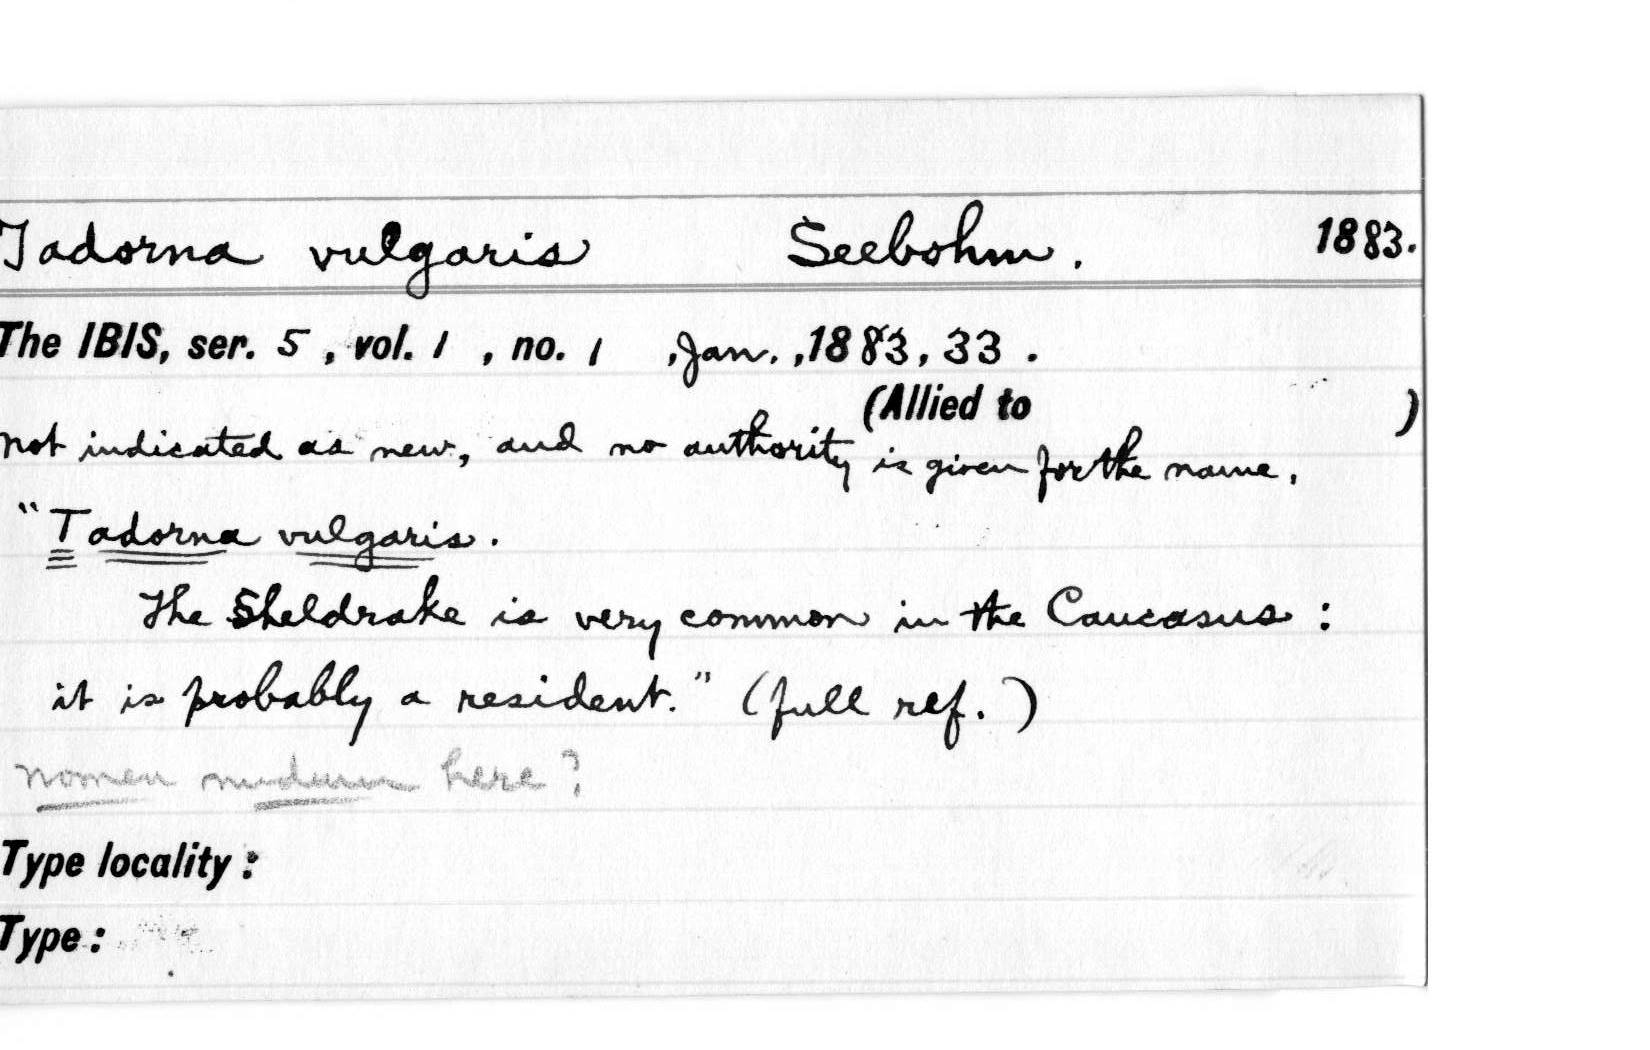 Tadorna vulgaris Seebohm. 1883.
The IBIS, ser. 5, vol. 1, no. 1, Jan., 1883, 33.
(Allied to )
not indicated as new, and no authority is given for the name.
"Tadorna vulgaris.
The Sheldrake is very common in the Caucasus:
it is probably a resident." (full ref.)
nomen nudum here?
Type locality:
Type: